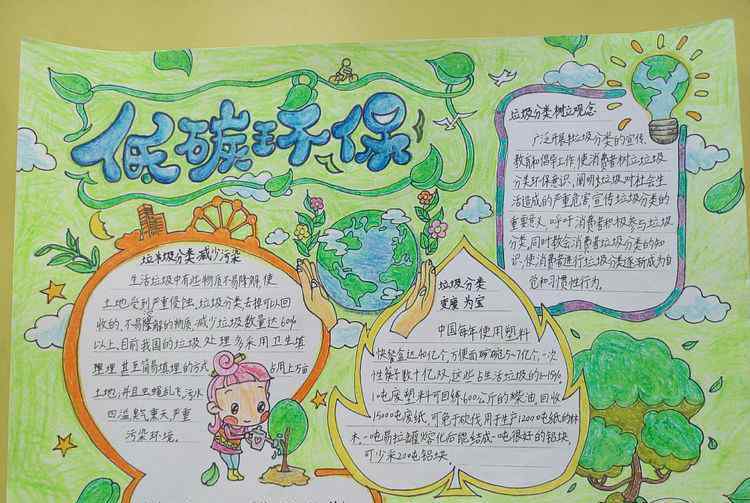 低碳环保
垃圾分类减少污染
生活垃圾中有些物质不易降解,使
土地受到严重侵蚀,垃圾分类去掉可以回
收的、不易降解的物质,减少垃圾数量达60%
以上,目前我国的垃圾处理多采用卫生填
埋理甚至简易填埋的方式 占用上万亩
土地,并且虫蝇乱飞,污水
四溢,臭气熏天严重
污染环境。
垃圾分类
变废为宝
中国每年使用塑料
快餐盒达40亿个,方便面碗5-7亿个,一次
性筷子数十亿双,这些占生活垃圾的8-15%
1吨废塑料可回炼600公斤的柴油,回收
1500吨废纸,可免于砍伐用于生产1200吨纸的林
木.一吨易拉罐熔化后能结成一吨很好的铝块,
可少采20吨铝块.
垃圾分类树立观念
广泛开展垃圾分类的宣传、
教育和倡导工作,使消费者树立垃圾
分类环保意识,阐明垃圾对社会生
活造成的严重危害,宣传垃圾分类的
重要意义,呼吁消费者积极参与垃圾
分类,同时教会消费者垃圾分类的知
识,使消费者进行垃圾分类逐渐成为自
觉和习惯性行为。